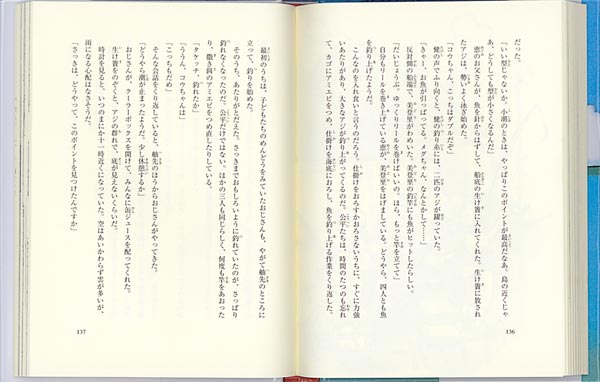 だった。
「いい型じゃないか。小潮のときは、やっぱりこのポイントが最高だなあ。島の近くじゃ
あ、どうしても型が小さくなるんだ」
恵のお父さんが、魚を針からはずして、船底の生け簀に入れてくれた。生け簀に放され
たアジは、勢いよく泳ぎ始めた。
「コウちゃん、こっちはダブルだぞ」
健の声でふり向くと、健の釣り糸には、二匹のアジが躍っていた。
「きゃー！お魚が引っぱってる。メグちゃん、なんとかして……」
反対側の船端で、美登里がわめいた。美登里の釣竿にも魚がヒットしたらしい。
「だいじょうぶ。ゆっくりリールを巻けばいいの。ほら、もっと竿を立てて」
自分もリールを巻き上げている恵が、美登里をはげましている。どうやら、四人とも魚
を釣り上げたようだ。
こんなのを入れ食いと言うのだろう。仕掛けをおろすかおろさないうちに、すぐに力強
いあたりがあり、大きなアジが釣り上がってくるのだ。公平たちは、時間のたつのも忘れ
て、カゴにアミエビをつめ、仕掛けを海底におろし、魚を釣り上げる作業をくり返した。
136
最初のうちは、子どもたちのめんどうをみていたおじさんも、やがて舳先のところに
立って、釣りを始めた。
そのうち、あたりがとだえた。さっきまでおもしろいように釣れていたのが、さっぱり
釣れなくなったのだ。公平だけではない。ほかの三人も同じらしく、何度も竿をあおった
り、撒き餌のアミエビをつめ直したりしている。
「タケッチ、釣れたか」
「ううん、コウちゃんは」
「こっちもだめ」
そんな会話をくり返していると、舳先のほうからおじさんがやってきた。
「どうやら潮が止まったようだ。少し休憩するか」
おじさんが、クーラーボックスを開けて、みんなに缶ジュースを配ってくれた。
生け簀をのぞくと、アジの群れで、底が見えないくらいだ。
時計を見ると、いつのまにか十一時近くになっていた。空はあいかわらず雲が多いが、
雨になる心配はなさそうだ。
「さっきは、どうやって、このポイントを見つけたんですか」
137